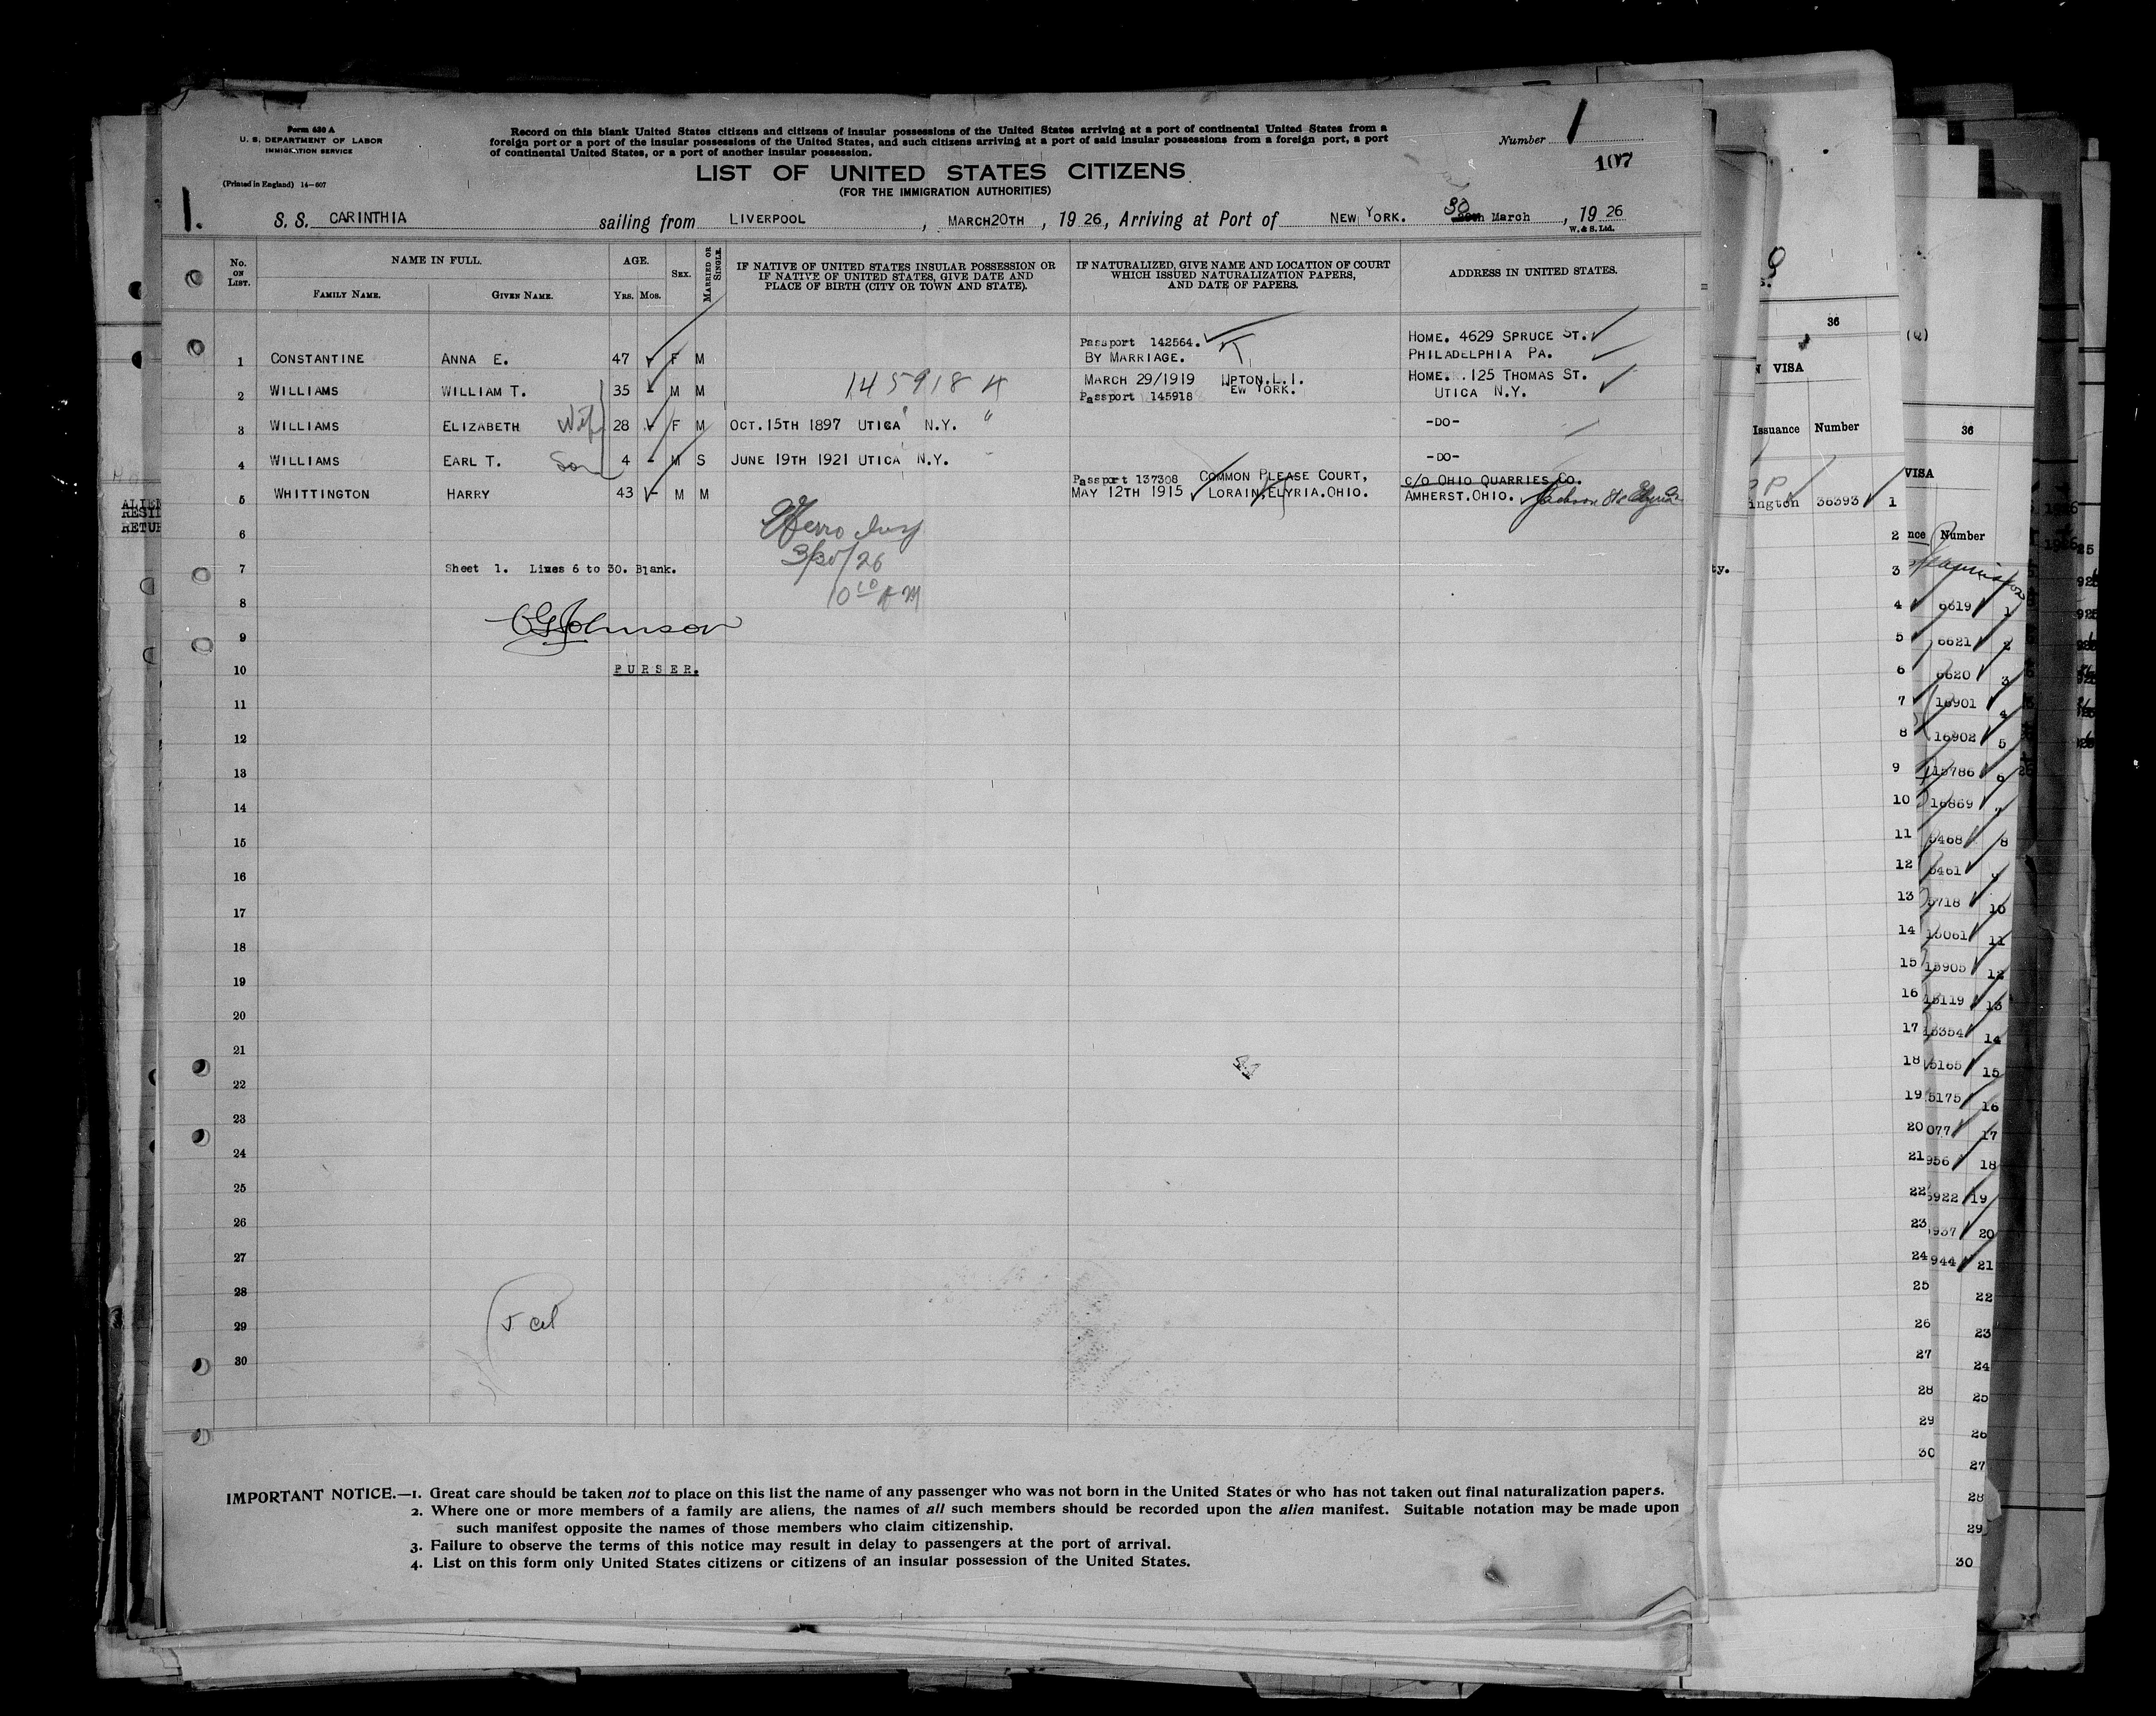 Form 630 A
U. S. DEPARTMENT OF LABOR
IMMIGRATION SERVICE
(Printed in England) 14—607
Record on this blank United States citizens and citizens of insular possessions of the United States arriving at a port of continental United States from a
foreign port or a port of the insular possessions of the United States, and such citizens arriving at a port of said insular possessions from a foreign port, a port
of continental United States, or a port of another insular possession.
Number 1
107
LIST OF UNITED STATES CITIZENS
(FOR THE IMMIGRATION AUTHORITIES)
1.
S. S. CARINTHIA sailing from LIVERPOOL, MARCH 20TH, 19 26, Arriving at Port of NEW YORK. 30 March, 19 26
W. & S. Ltd.
No. ON LIST.
NAME IN FULL.
FAMILY NAME.
GIVEN NAME.
AGE.
YRS. MOS.
SEX.
MARRIED OR SINGLE.
IF NATIVE OF UNITED STATES INSULAR POSSESSION OR
IF NATIVE OF UNITED STATES, GIVE DATE AND
PLACE OF BIRTH (CITY OR TOWN AND STATE).
IF NATURALIZED, GIVE NAME AND LOCATION OF COURT
WHICH ISSUED NATURALIZATION PAPERS,
AND DATE OF PAPERS.
ADDRESS IN UNITED STATES.
Passport 142564. HOME. 4629 SPRUCE ST.
1 CONSTANTINE ANNA E. 47 - F M BY MARRIAGE. PHILADELPHIA PA.
MARCH 29/1919 UPTON.L.I. HOME. 125 THOMAS ST.
2 WILLIAMS WILLIAM T. 35 - M M 145918 Passport 145918 EW YORK. UTICA N.Y.
3 WILLIAMS ELIZABETH Wife 28 - F M OCT.15TH 1897 UTICA N.Y. " -DO-
4 WILLIAMS EARL T. Son 4 - M S JUNE 19TH 1921 UTICA N.Y. -DO-
Passport 137308 COMMON PLEASE COURT, c/o OHIO QUARRIES CO.
5 WHITTINGTON HARRY 43 - M M MAY 12TH 1915 LORAIN,ELYRIA.OHIO. AMHERST.OHIO.
6
3/30/26
7 Sheet 1. Lines 6 to 30. Blank.
10 10 AM
8
CG Johnson
9
10 PURSER.
11
12
13
14
15
16
17
18
19
20
21
22
23
24
25
26
27
28
29
30
IMPORTANT NOTICE.—1. Great care should be taken not to place on this list the name of any passenger who was not born in the United States or who has not taken out final naturalization papers.
2. Where one or more members of a family are aliens, the names of all such members should be recorded upon the alien manifest. Suitable notation may be made upon
such manifest opposite the names of those members who claim citizenship.
3. Failure to observe the terms of this notice may result in delay to passengers at the port of arrival.
4. List on this form only United States citizens or citizens of an insular possession of the United States.
36
VISA
Issuance Number
ington 36393 1
2
3
4
5
6
7
8
9
10
11
12
13
14
15
16
17
18
19
20
21
22
23
24
25
26
27
28
29
30
(Q)
36
VISA
nce Number
6619 1
6621 2
6620 3
16901 4
16902 5
15786 6
16869 7
8
9
10
15061 11
15905 12
15119 13
14
15
16
17
18
19
20
21
22
23
24
25
26
27
28
29
30